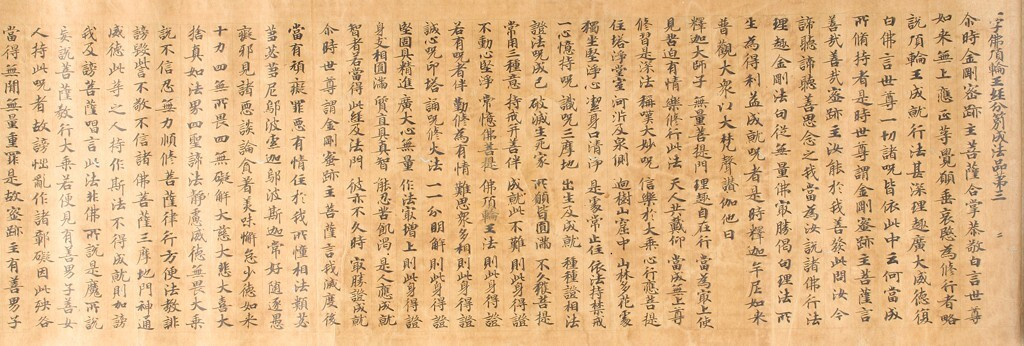 一字佛頂輪王經分別成法品第三 二
尒時金剛密跡主菩薩合掌恭敬白言世尊
如來無上應正等覺願垂哀愍為修行者略
說頂輪王成就行法甚深理趣廣大威德復
白佛言世尊一切諸呪皆依此中云何當成
所脩持者是時世尊謂金剛密跡主菩薩言
善哉善哉密跡主汝能於我善發此問汝今
諦聽諦聽善思念之我當為汝說諸佛行法
理趣金剛法句從無量佛最勝倡句理法所
生為得利益成就呪者是時釋迦牟尼如來
普觀大眾以大梵聲讚伽他曰
釋迦大師子 無量菩提門 理趣自在行 當為最上使
見皆迫有情 樂修行此法 天人共戴仰 當成無上尊
修習是深法 稱嘆大妙呪 信樂於大乘 心行應菩提
住塔淨室室 河沂及泉側 迴樹山窟中 山林多花處
獨坐堅淨心 潔身口清淨 是處常止住 依法持禁戒
一心憶持呪 識呪三摩地 出生及成就 種種證相法
證法呪成已 破滅生死家 所願皆圓滿 不久獲菩提
常用三種意 持戒并善伴 成就此不難 則此身得證
不動心堅淨 常憶佛菩提 佛頂輪王法 則此身得證
若有呪者伴 勤修為有情 難思眾多相 則此身得證
誠心呪印塔 誦呪修大法 一一分明解 則此身得證
堅固具精進 廣大心無量 作法最增上 則此身得證
身支相圓滿 質直具真智 能忍皆飢渴 是人應成就
智者若當得 此經及法門 彼亦不久時 最勝成就
尒時世尊謂金剛密跡主菩薩言我滅度後
當有頑癡罪惡有情於我所憧相法類苾
芻苾芻尼鄔波索迦鄔波斯迦常好隨逐愚
癡邪見諸惡談論貪著美味懈怠少德如來
十力四無所畏四無礙解大慈大悲大喜大
捨真如法界四聖諦法靜慮威德無畏大乘
說不信忍無力順修菩薩律行方便法教誹
謗毀呰不敬不信諸佛菩薩三摩地門神通
威德此等之人持作斯法不得成就則加謗
我及謗菩薩唱言此法非佛所說是魔所說
妄說善薩教行大乘若便見有善男子善女
人持此呪者故謗恠亂作諸鄣礙因此殃咎
當得無間無量重罪是故密跡主有善男子